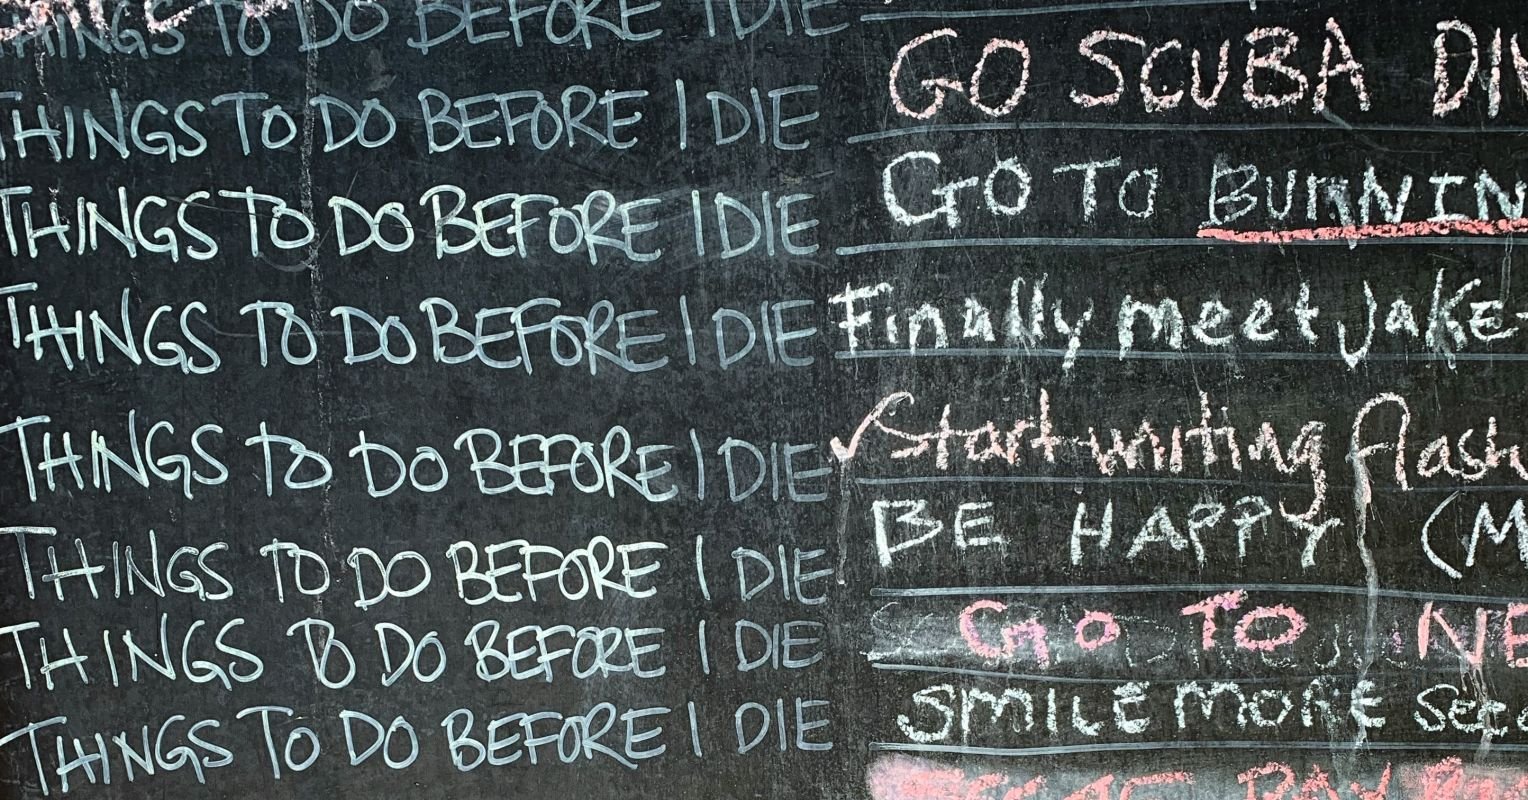 THINGS TO DO BEFORE I DIE
THINGS TO DO BEFORE I DIE GO SCUBA DIV
THINGS TO DO BEFORE I DIE GO TO BURNIN
THINGS TO DO BEFORE I DIE Finally meet JaKe
THINGS TO DO BEFORE I DIE Start writing flash
THINGS TO DO BEFORE I DIE BE HAPPY (M
THINGS TO DO BEFORE I DIE GO TO NE
THINGS TO DO BEFORE I DIE SMILE MORE